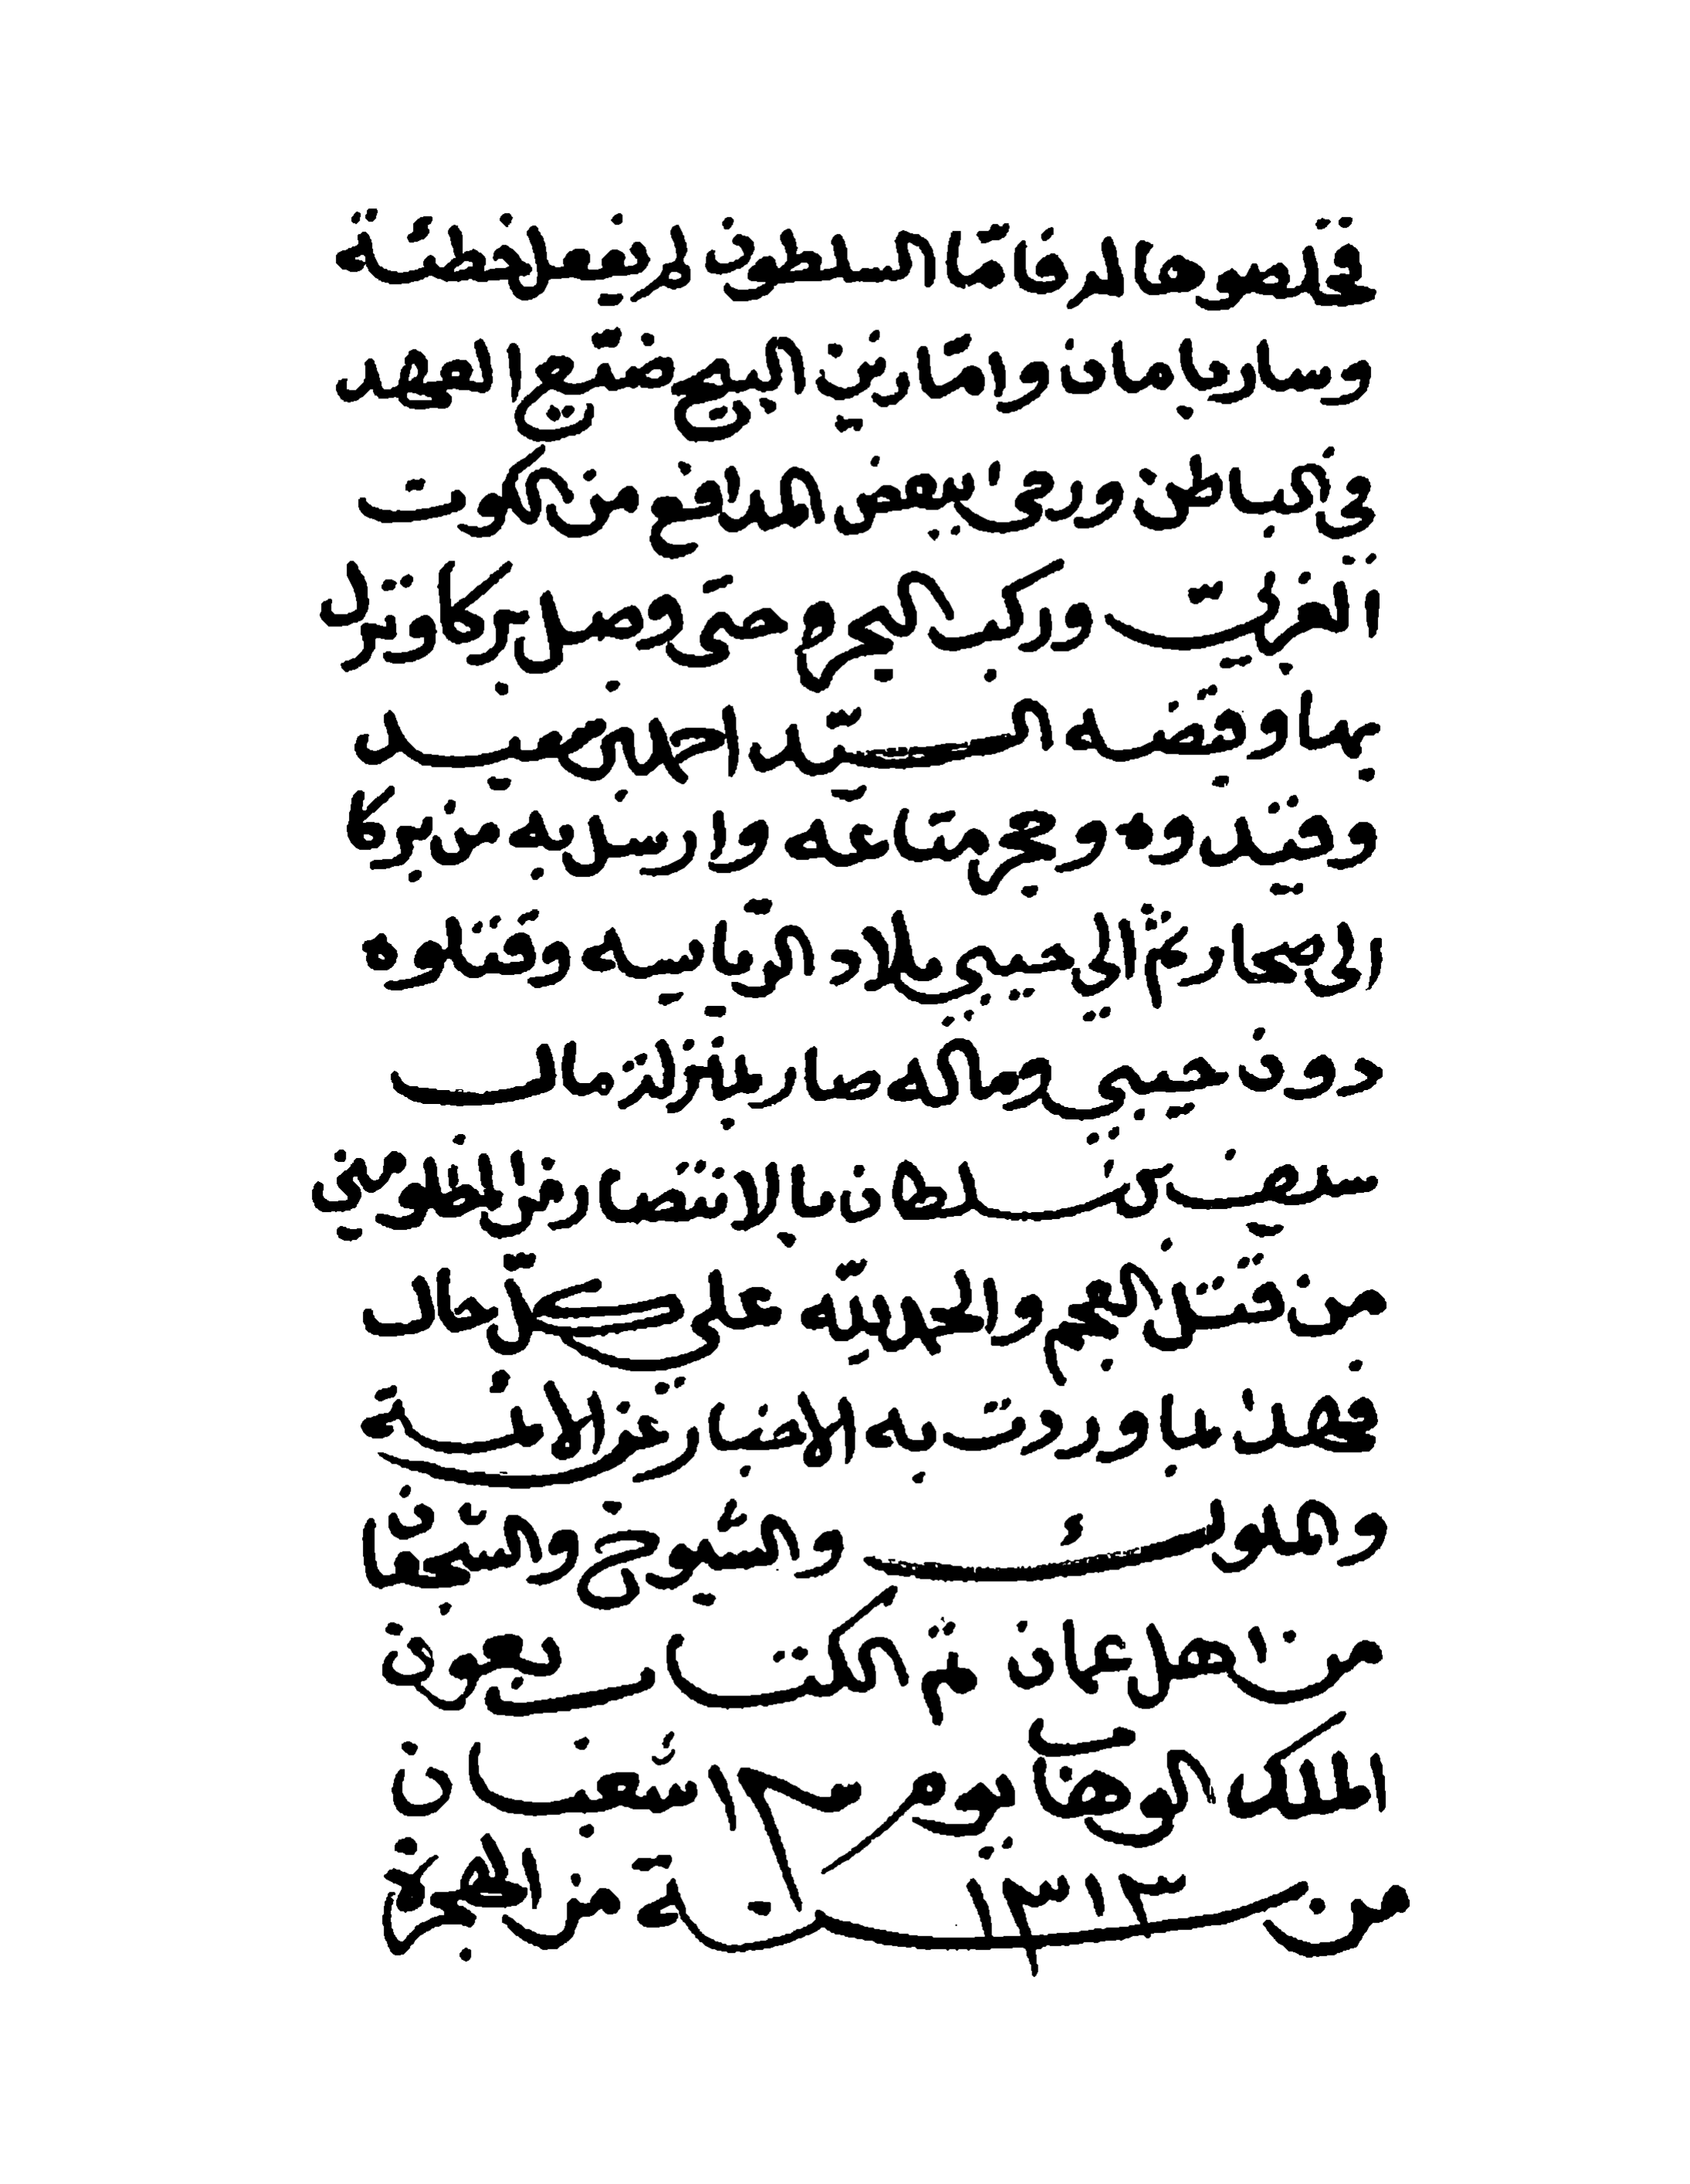 فخلصوها لهم فامّا السلطون لم يفعل خطئة
وسار بامان وامّا زين البيع ضيّع العهد
في الباطن ورمى ببعض المدافع من الكوت
الغربي وركب البحر حتى وصل بركا ونزل
بها وقبضه السيّد احمد بن سعيد
وقيّدوه وحجر متاعه وارسل به من بركا
الى صحار ثم الى حيبي بلاد الريّاسيه وقتلوه
دون حيبي وماله صار بمنزلة مال
سيف بن سلطان بالانتصار من المظلومين
من قتل العجم والحمد لله على كلّ حال
فهذا بما وردت به الاخبار عن الائمة
والملوك والشيوخ والشجعان
من اهل عمان تم الكتاب بعون
الملك الوهاب يوم ١ شعبان
من سنة ١٣١٣ من الهجرة